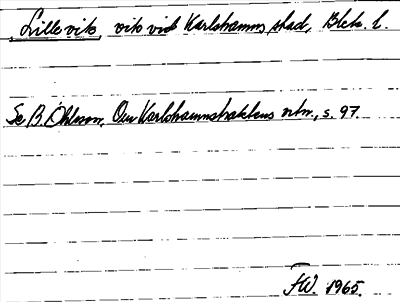 Lille vik, vik vid Karlshamns stad, Blek. l.
Se B. Ohlsson, Om Karlshamnstraktens nbn., s. 97.
HW. 1965.